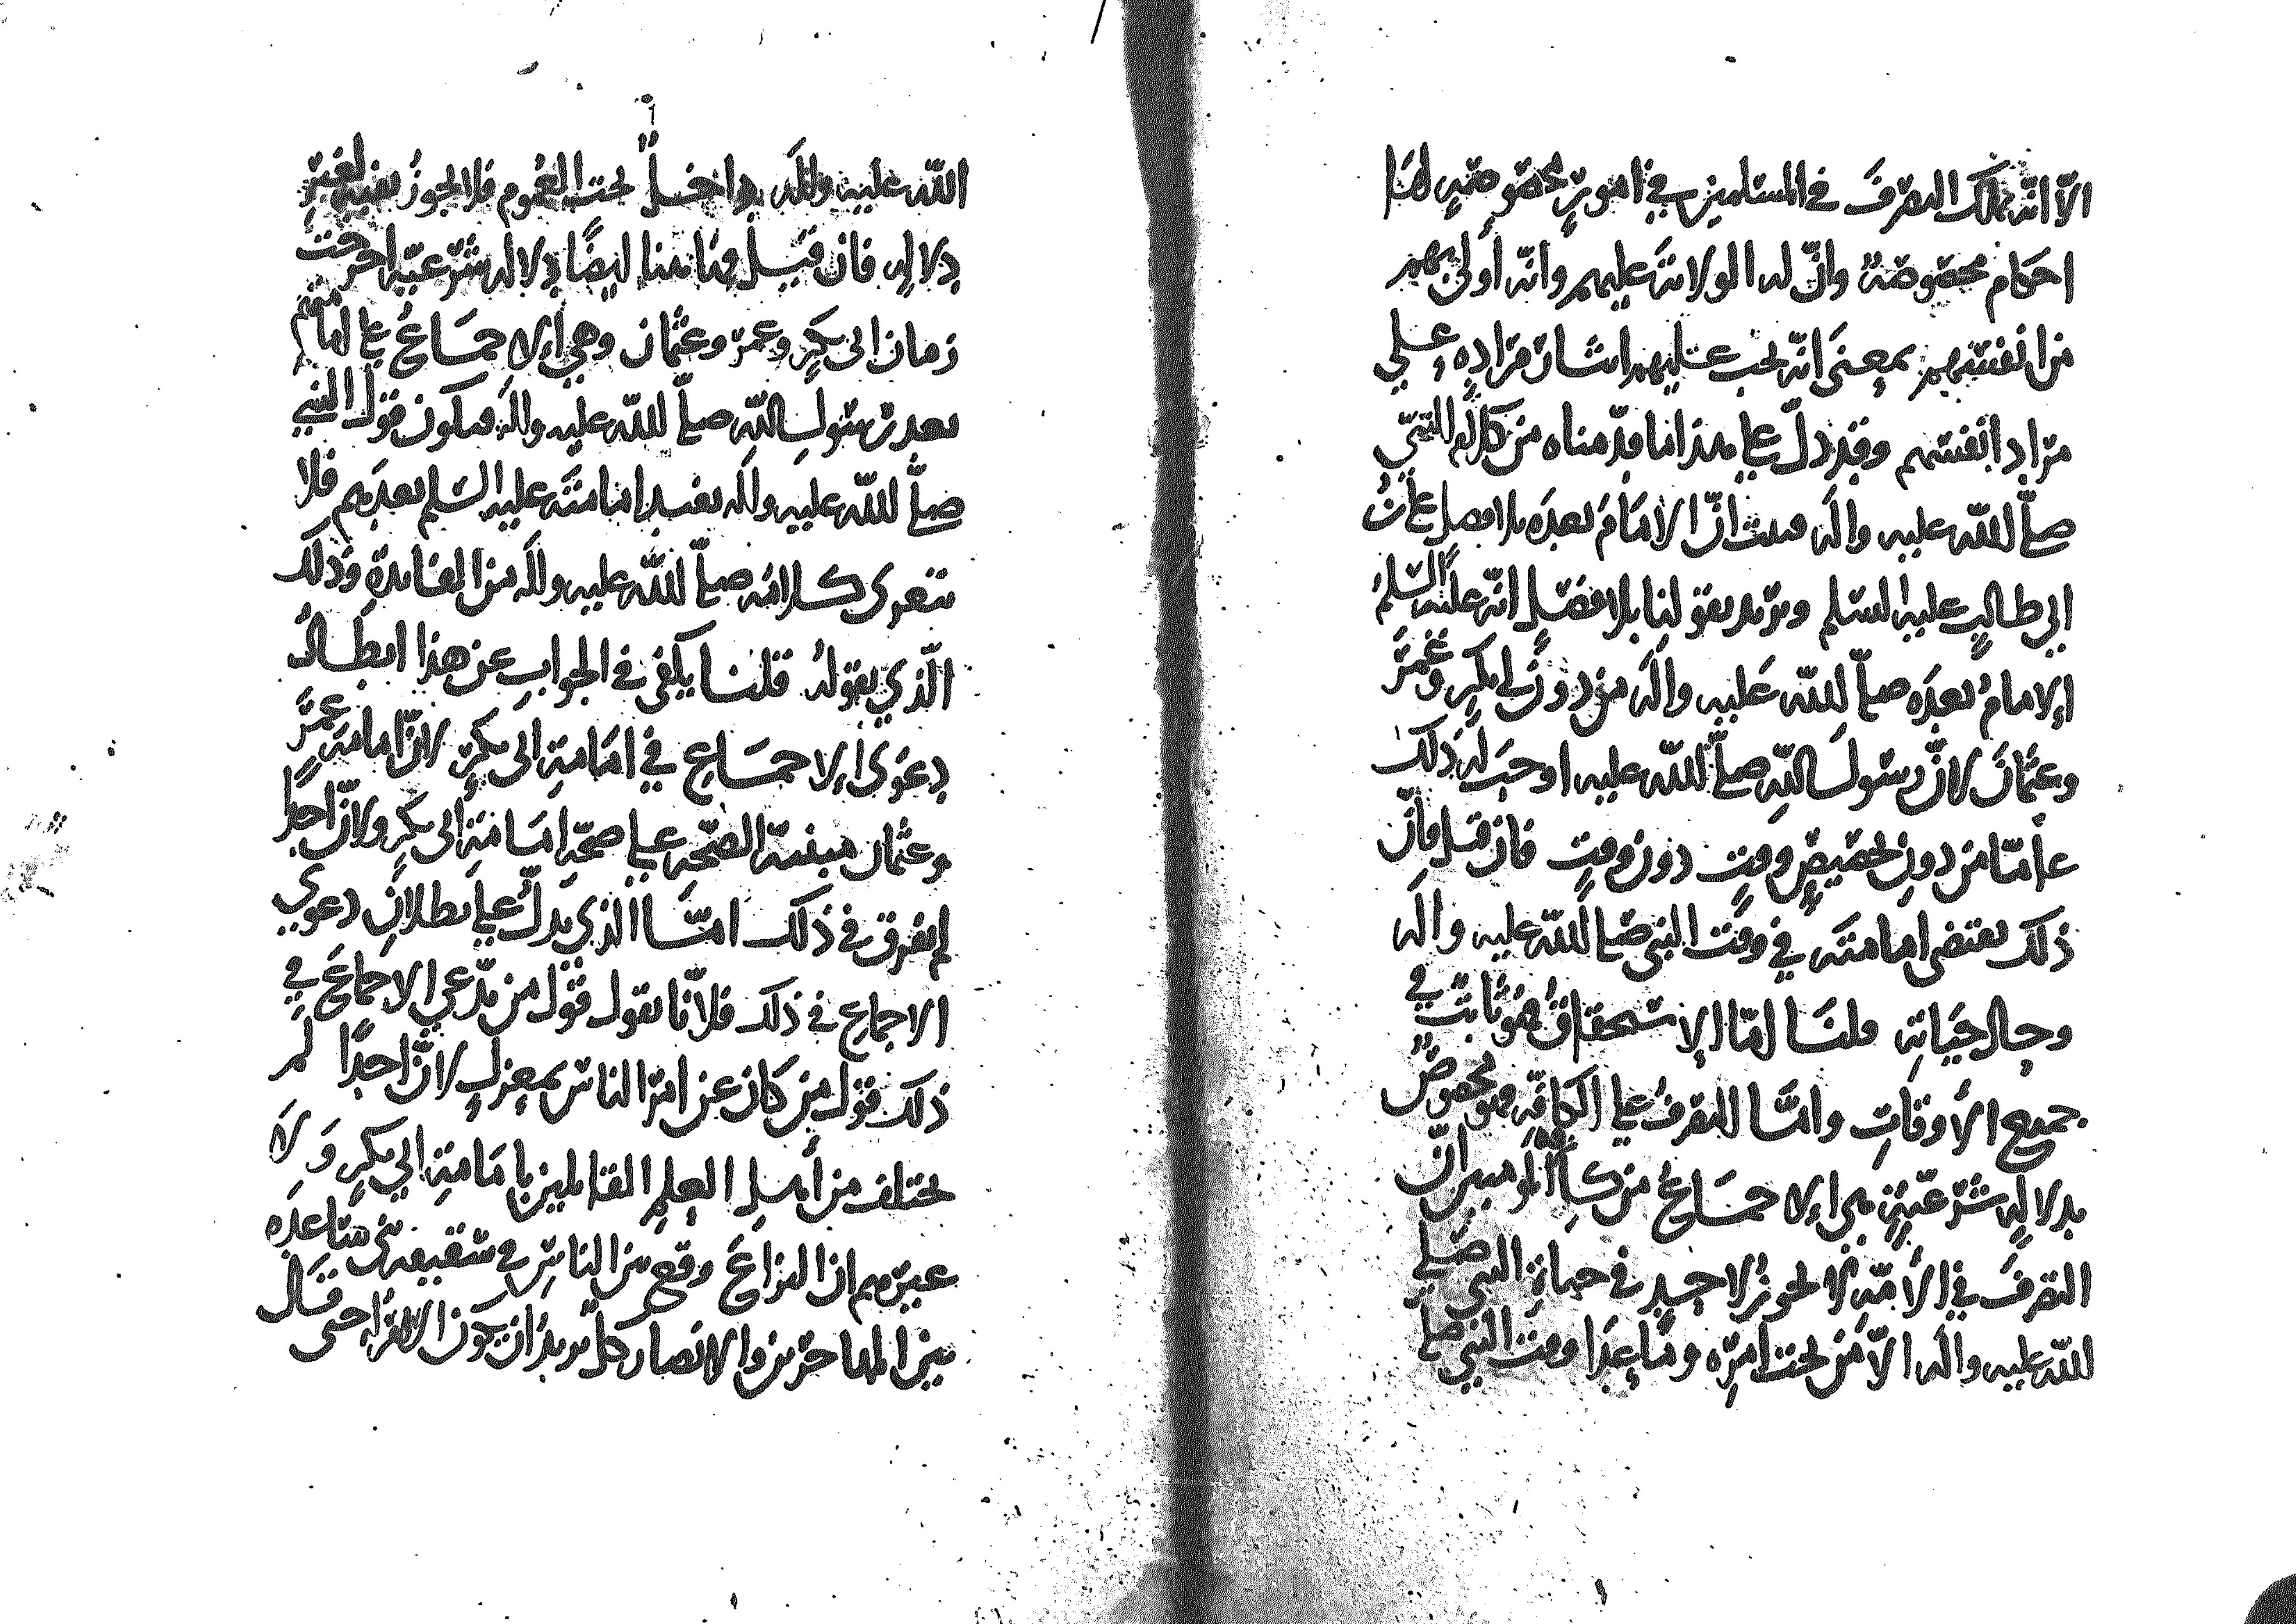 الا انه يملك التصرف في المسلمين في امور مخصوصة لها
احكام مخصوصة وان له الولاية عليهم وانه أولى بهم
من انفسهم بمعنى انه يجب عليهم ايثار مراده على
مراد انفسهم وقد دل على هذا ما قدمناه من كلام النبي
صلى الله عليه واله فثبت ان الامام بعده بلا فصل علي بن
ابي طالب عليه السلم ونريد بقولنا بلا فصل انه عليه السلم
الامام بعده صلى الله عليه واله من دون ابي بكر وعمر
وعثمان لان رسول الله صلى الله عليه اوجب له ذلك
عاما من دون تخصيص وقت دون وقت فان قيل فان
ذلك يقتضي امامته في وقت النبي صلى الله عليه واله
وحال حياته قلنا اما الاستحقاق فهو ثابت في
جميع الأوقات واما التصرف على الكافة فهو مخصوص
بدلالة شرعية هي الاجماع من كافة المومنين ان
التصرف في الأمة لا يجوز لاحد في حياة النبي صلى
الله عليه واله الا من تحت امره وما عدا وقت النبي صلى
الله عليه واله داخل تحت العموم فلا يجوز نفيه لغير
دلالة فان قيل فهاهنا ايضا دلالة شرعية اخرجت
زمان ابي بكر وعمر وعثمان وهي الاجماع على امامتهم
بعد رسول الله صلى الله عليه واله فيكون قول النبي
صلى الله عليه واله يفيد امامته عليه السلم بعدهم فلا
يتعرى كلامه صلى الله عليه واله من الفايدة وذلك
الذي نقوله قلنا يكفي في الجواب عن هذا ابطال
دعوى الاجماع في امامة ابي بكر لان امامة عمر
وعثمان مبنية الصحة على صحة امامة ابي بكر ولان احدا
لم يفرق في ذلك اما الذي يدل على بطلان دعوى
الاجماع في ذلك فلانا نقول قول من يدعي الاجماع في
ذلك قول من كان عن امر الناس بمعزل لان احدا لم
يختلف من أهل العلم القايلين بامامة ابي بكر ولا
غيرهم ان النزاع وقع بين الناس في سقيفة بني ساعدة
بين المهاجرين والانصار كل يريد ان يكون الامر له حتى قال